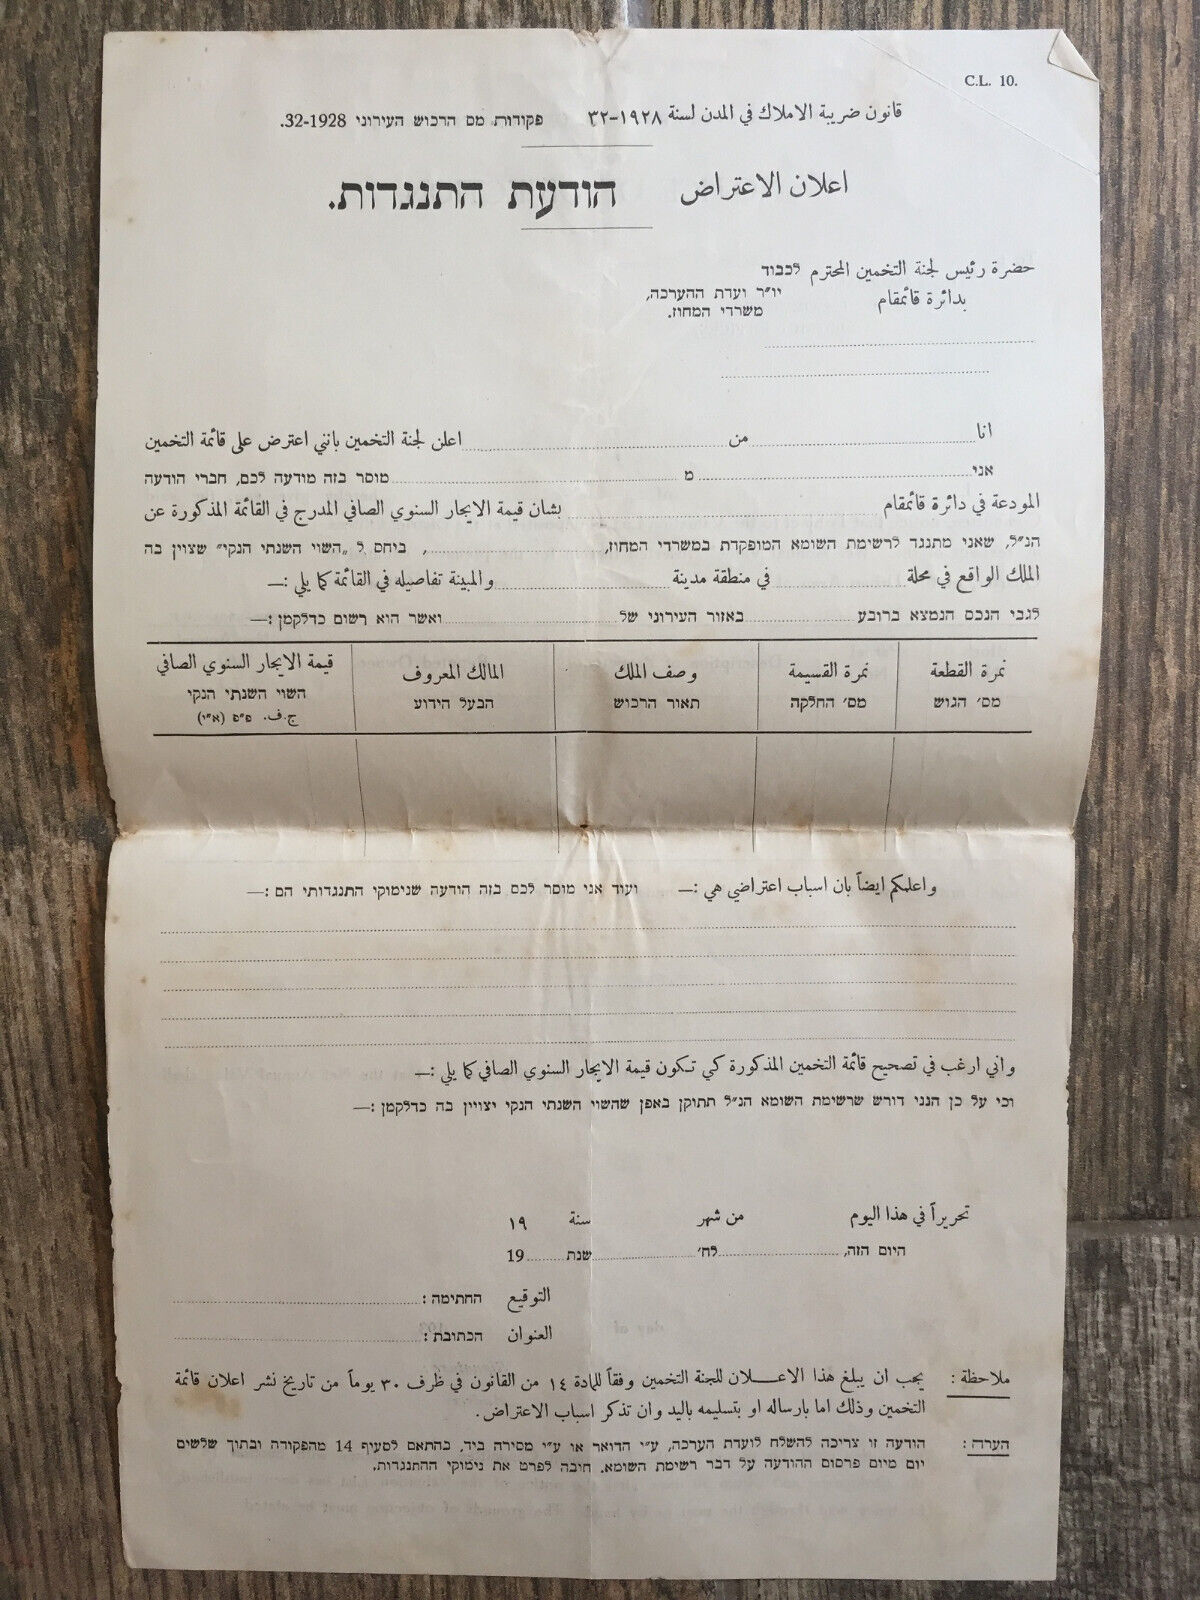 C.L. 10.
قانون ضريبة الاملاك في المدن لسنة ١٩٢٨-٣٢ פקודות מס הרכוש העירוני 1928-32.
اعلان الاعتراض הודעת התנגדות.
حضرة رئيس لجنة التخمين المحترم לכבוד
بدائرة قائمقام יו״ר ועדת ההערכה,
משרדי המחוז.
انا من اعلن لجنة التخمين بانني اعترض على قائمة التخمين
אני מ מוסר בזה מודעה לכם, חברי הודעה
المودعة في دائرة قائمقام بشان قيمة الايجار السنوي الصافي المدرج في القائمة المذكورة عن
הנ״ל, שאני מתנגד לרשימת השומא המופקדת במשרדי המחוז, , ביחס ל „השוי השנתי הנקי״ שצוין בה
الملك الواقع في محلة في منطقة مدينة والمبينة تفاصيله في القائمة كما يلي :—
לגבי הנכס הנמצא ברובע באזור העירוני של ואשר הוא רשום כדלקמן :—
نمرة القطعة نمرة القسيمة وصف الملك المالك المعروف قيمة الايجار السنوي الصافي
מס׳ הגוש מס׳ החלקה תאור הרכוש הבעל הידוע השוי השנתי הנקי
ج.ف. פ״פ (א״י)
واعلمكم ايضاً بان اسباب اعتراضي هي :— ועוד אני מוסר לכם בזה הודעה שנימוקי התנגדותי הם :—
واني ارغب في تصحيح قائمة التخمين المذكورة كي تكون قيمة الايجار السنوي الصافي كما يلي :—
וכי על כן הנני דורש שרשימת השומא הנ״ל תתוקן באפן שהשוי השנתי הנקי יצויין בה כדלקמן :—
تحريراً في هذا اليوم من شهر سنة ١٩
היום הזה, לח׳ שנת 19
التوقيع החתימה :
العنوان הכתובת :
ملاحظة : يجب ان يبلغ هذا الاعـــلان للجنة التخمين وفقاً للمادة ١٤ من القانون في ظرف ٣٠ يوماً من تاريخ نشر اعلان قائمة
التخمين وذلك اما بارساله او بتسليمه باليد وان تذكر اسباب الاعتراض.
הערה : הודעה זו צריכה להשלח לועדת הערכה, ע״י הדואר או ע״י מסירה ביד, בהתאם לסעיף 14 מהפקודה ובתוך שלשים
יום מיום פרסום ההודעה על דבר רשימת השומא. חיבה לפרט את נימוקי ההתנגדות.